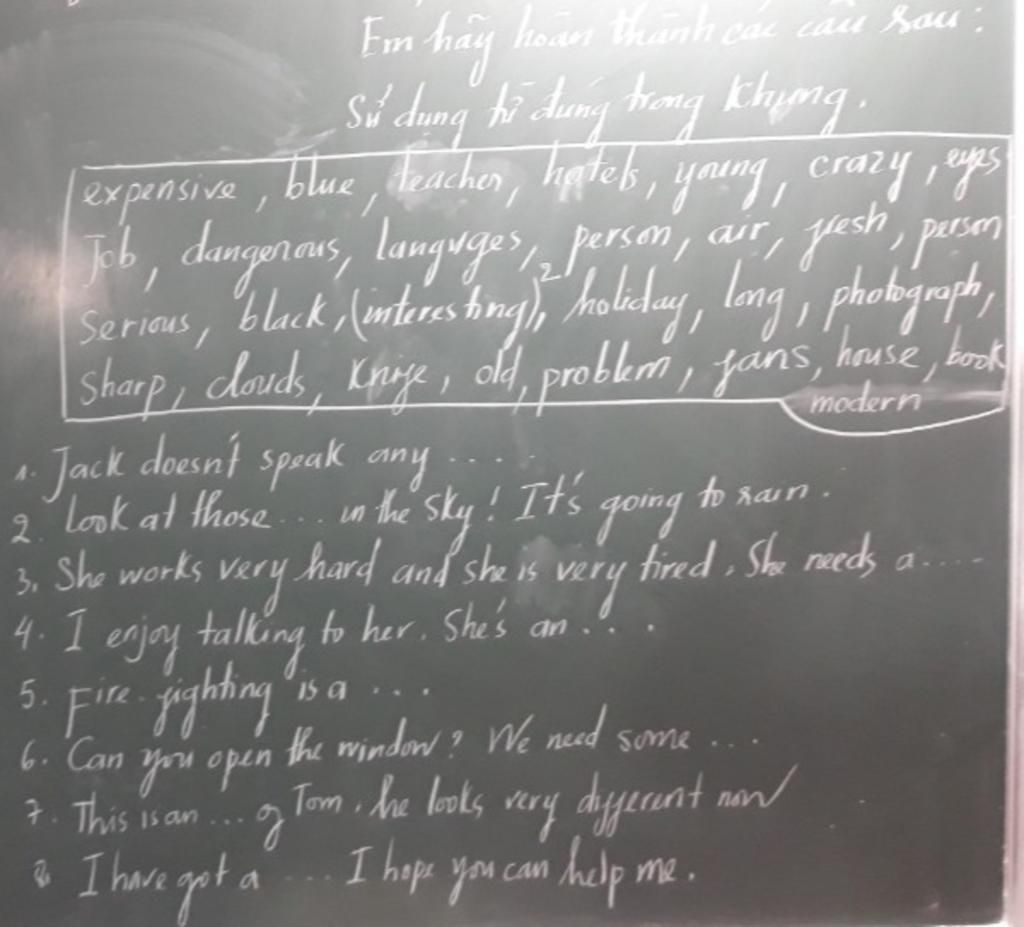 Em hãy hoàn thành các câu sau:
Sử dụng từ đúng trong khung.
expensive, blue, teacher, hotels, young, crazy, eyes
Job, dangerous, languges, person, air, fresh, person
Serious, black, (interesting)², holiday, long, photograph,
Sharp, clouds, knife, old, problem, fans, house, book
modern
1. Jack doesn't speak any ....
2. Look at those ... in the sky! It's going to rain.
3. She works very hard and she is very tired. She needs a .....
4. I enjoy talking to her. She's an ....
5. Fire-fighting is a ....
6. Can you open the window? We need some ....
7. This is an ... of Tom. he looks very different now
8. I have got a .... I hope you can help me.